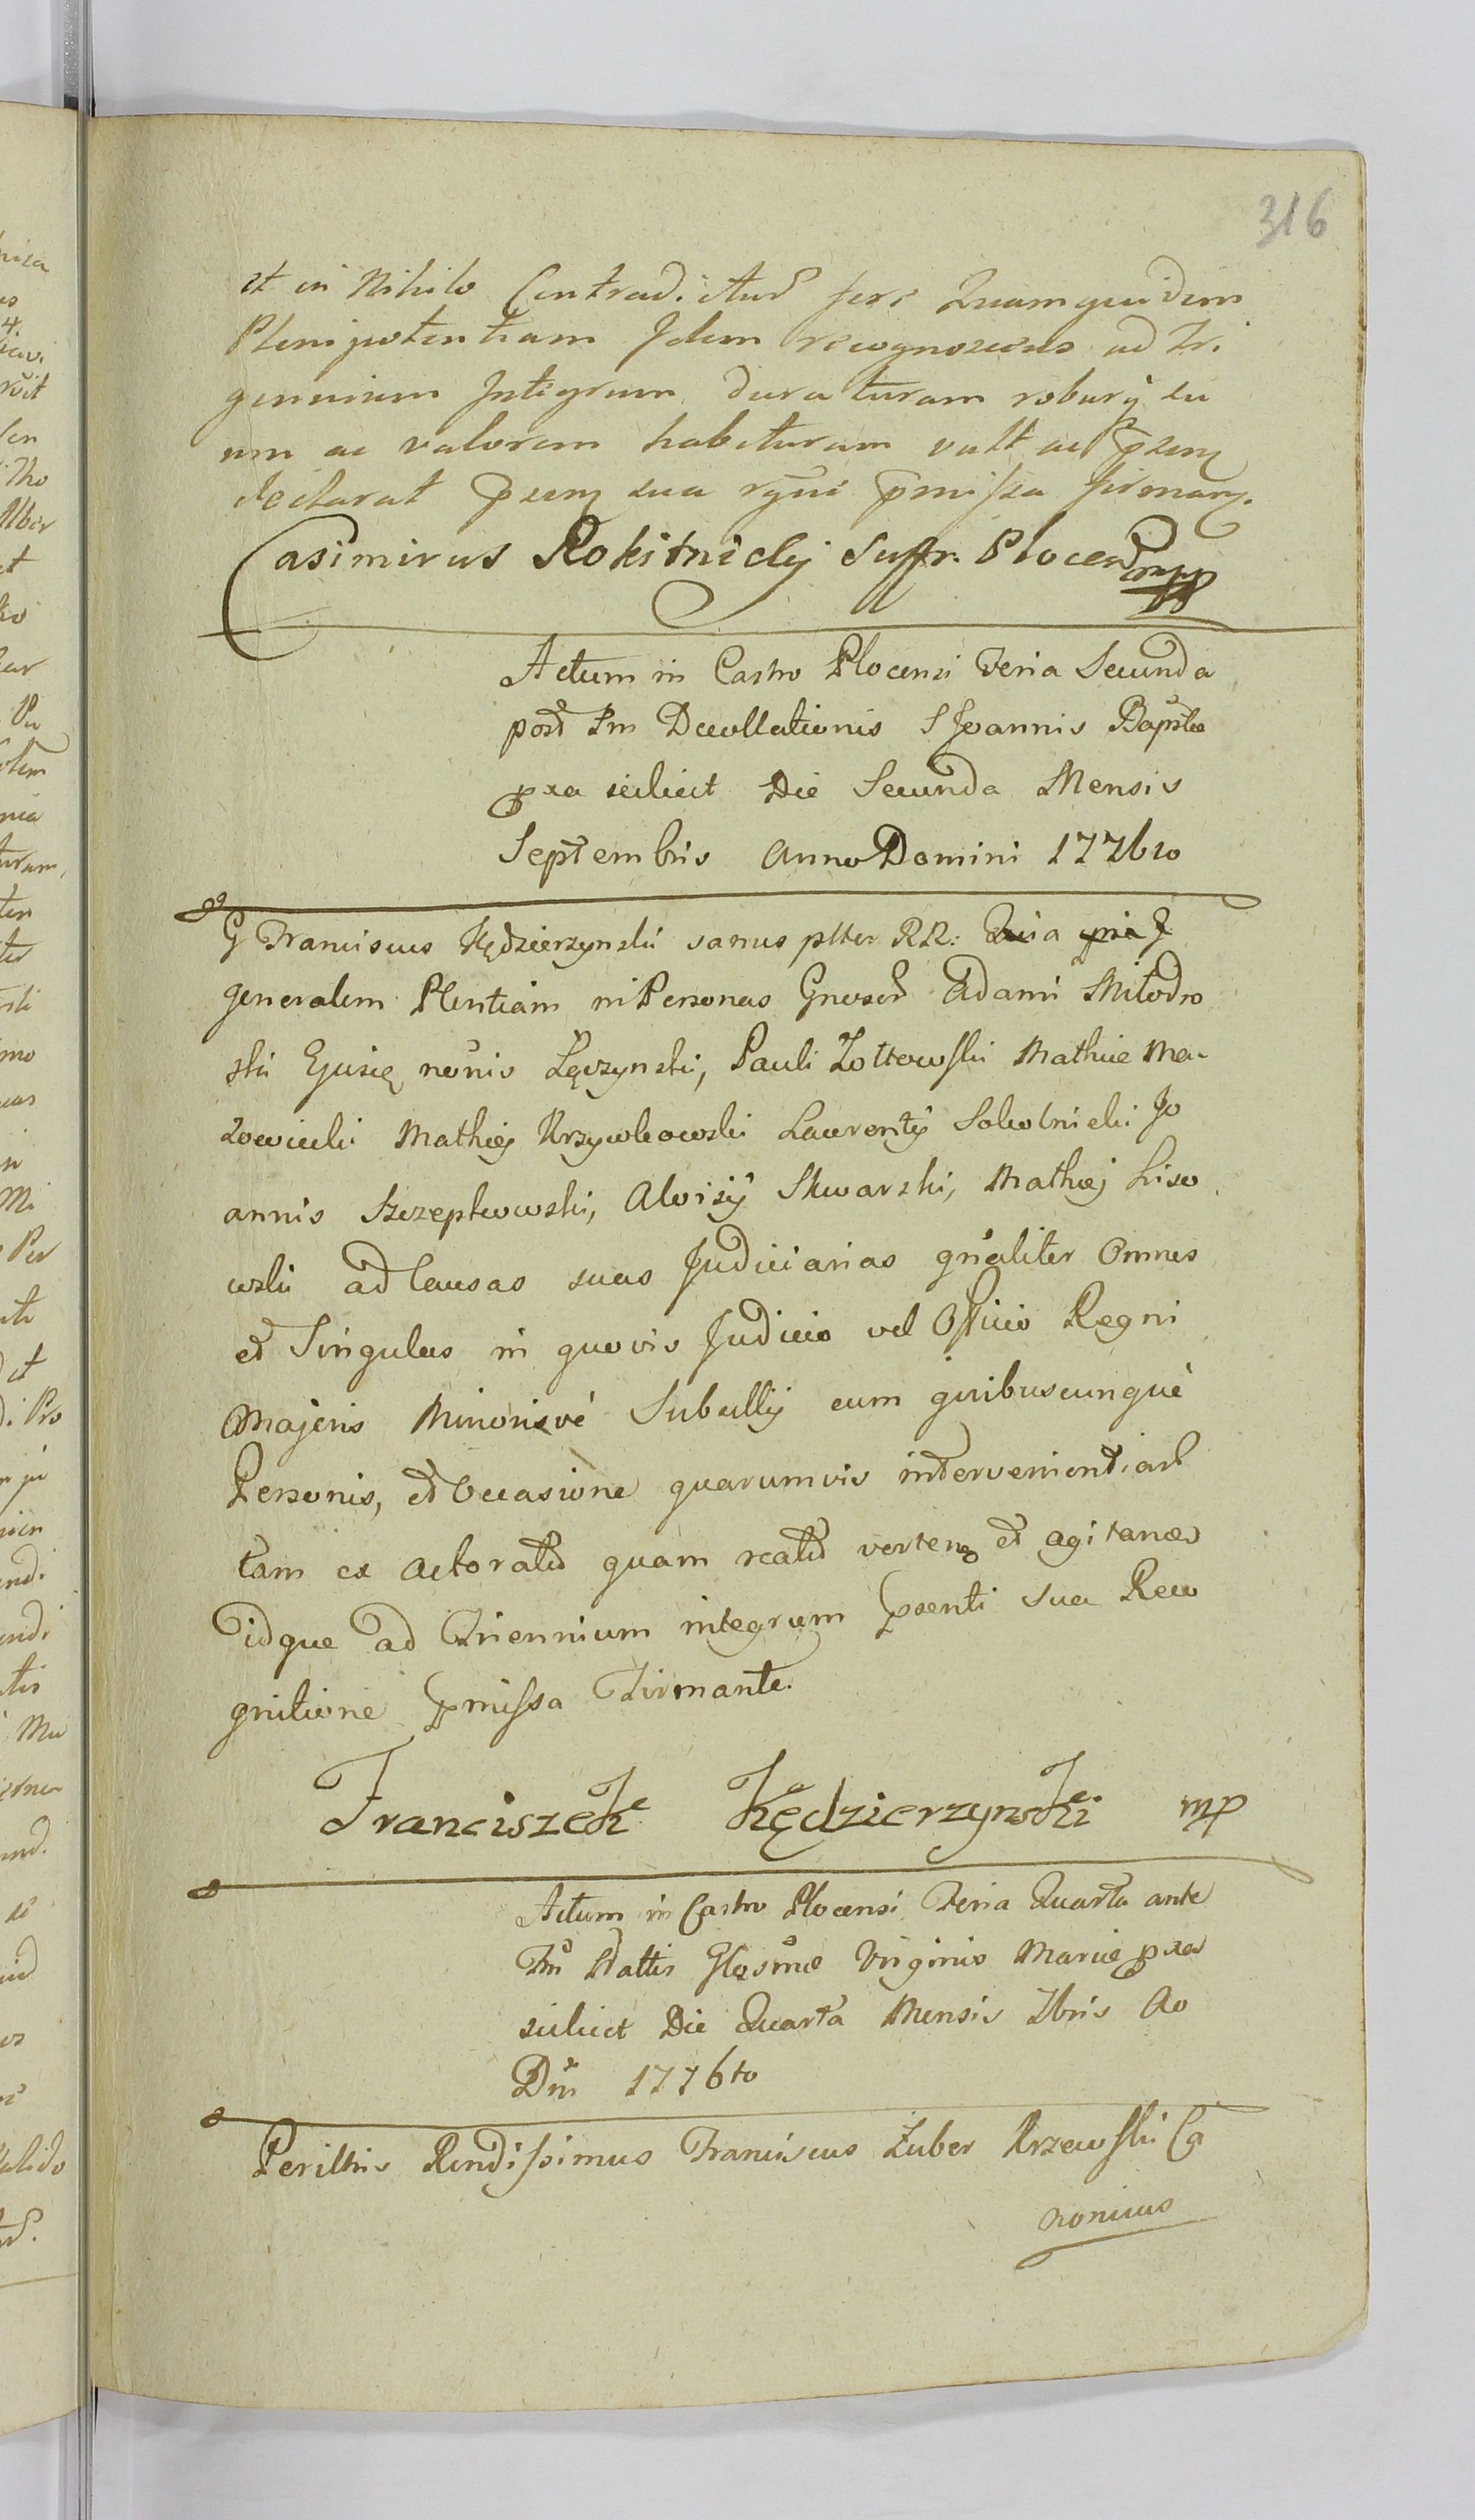 316
et in Nihilo Contradictur: fere Quamquidem
Plenipotentiam Idem recognoscens ad Tri
gennium Integrum duraturam robury su
um ac valorem habituram vult ac pszen
declarat pszen sua rgni pmissa firman.
Casimirus Rokitnicky Suffr. Plocen mpp
Actum in Castro Plocensi Feria Secunda
post Fm Decollationis S Joannis Bapstae
pxa scilicet Die Secunda Mensis
Septembris Anno Domini 1776to
G Franciscus Kędzierzynski sanus pltter RR: Quia
generalem Plentiam in Personas Gnosor Adami Miłodro
ski Ejusię nonis Łęczynski, Pauli Zottowski Mathiæ Ma-
zowiecki Mathiæj Krzywkowski Laurentÿ Sokolnicki Jo
annis Szczepkowski, Aloisÿ Skwarski, Mathiæj Liso
wski ad Causas suas Judiciarias gnaliter Omnes
et Singulas in quovis Judicio vel Officio Regni
Majoris Minorisvé Subsellij cum quibuscunqué
Personis, et Occasione quarumvis intervenientiar
tam ex Actoratu quam reatu verten et agitanas
idque ad Triennium integrum pxenti sua Reco
gnitione pmissa Firmante.
Franciszek Kędzierzynski mp
Actum in Castro Plocensi Feria Quarta ante
Fm Nattis Glosmæ Virginis Mariæ pxa
scilicet Die Quarta Mensis 7bris Ao
Dni 1776to
Perilltris Rendissimus Franciscus Zuber Krzewski Ca
nonicus